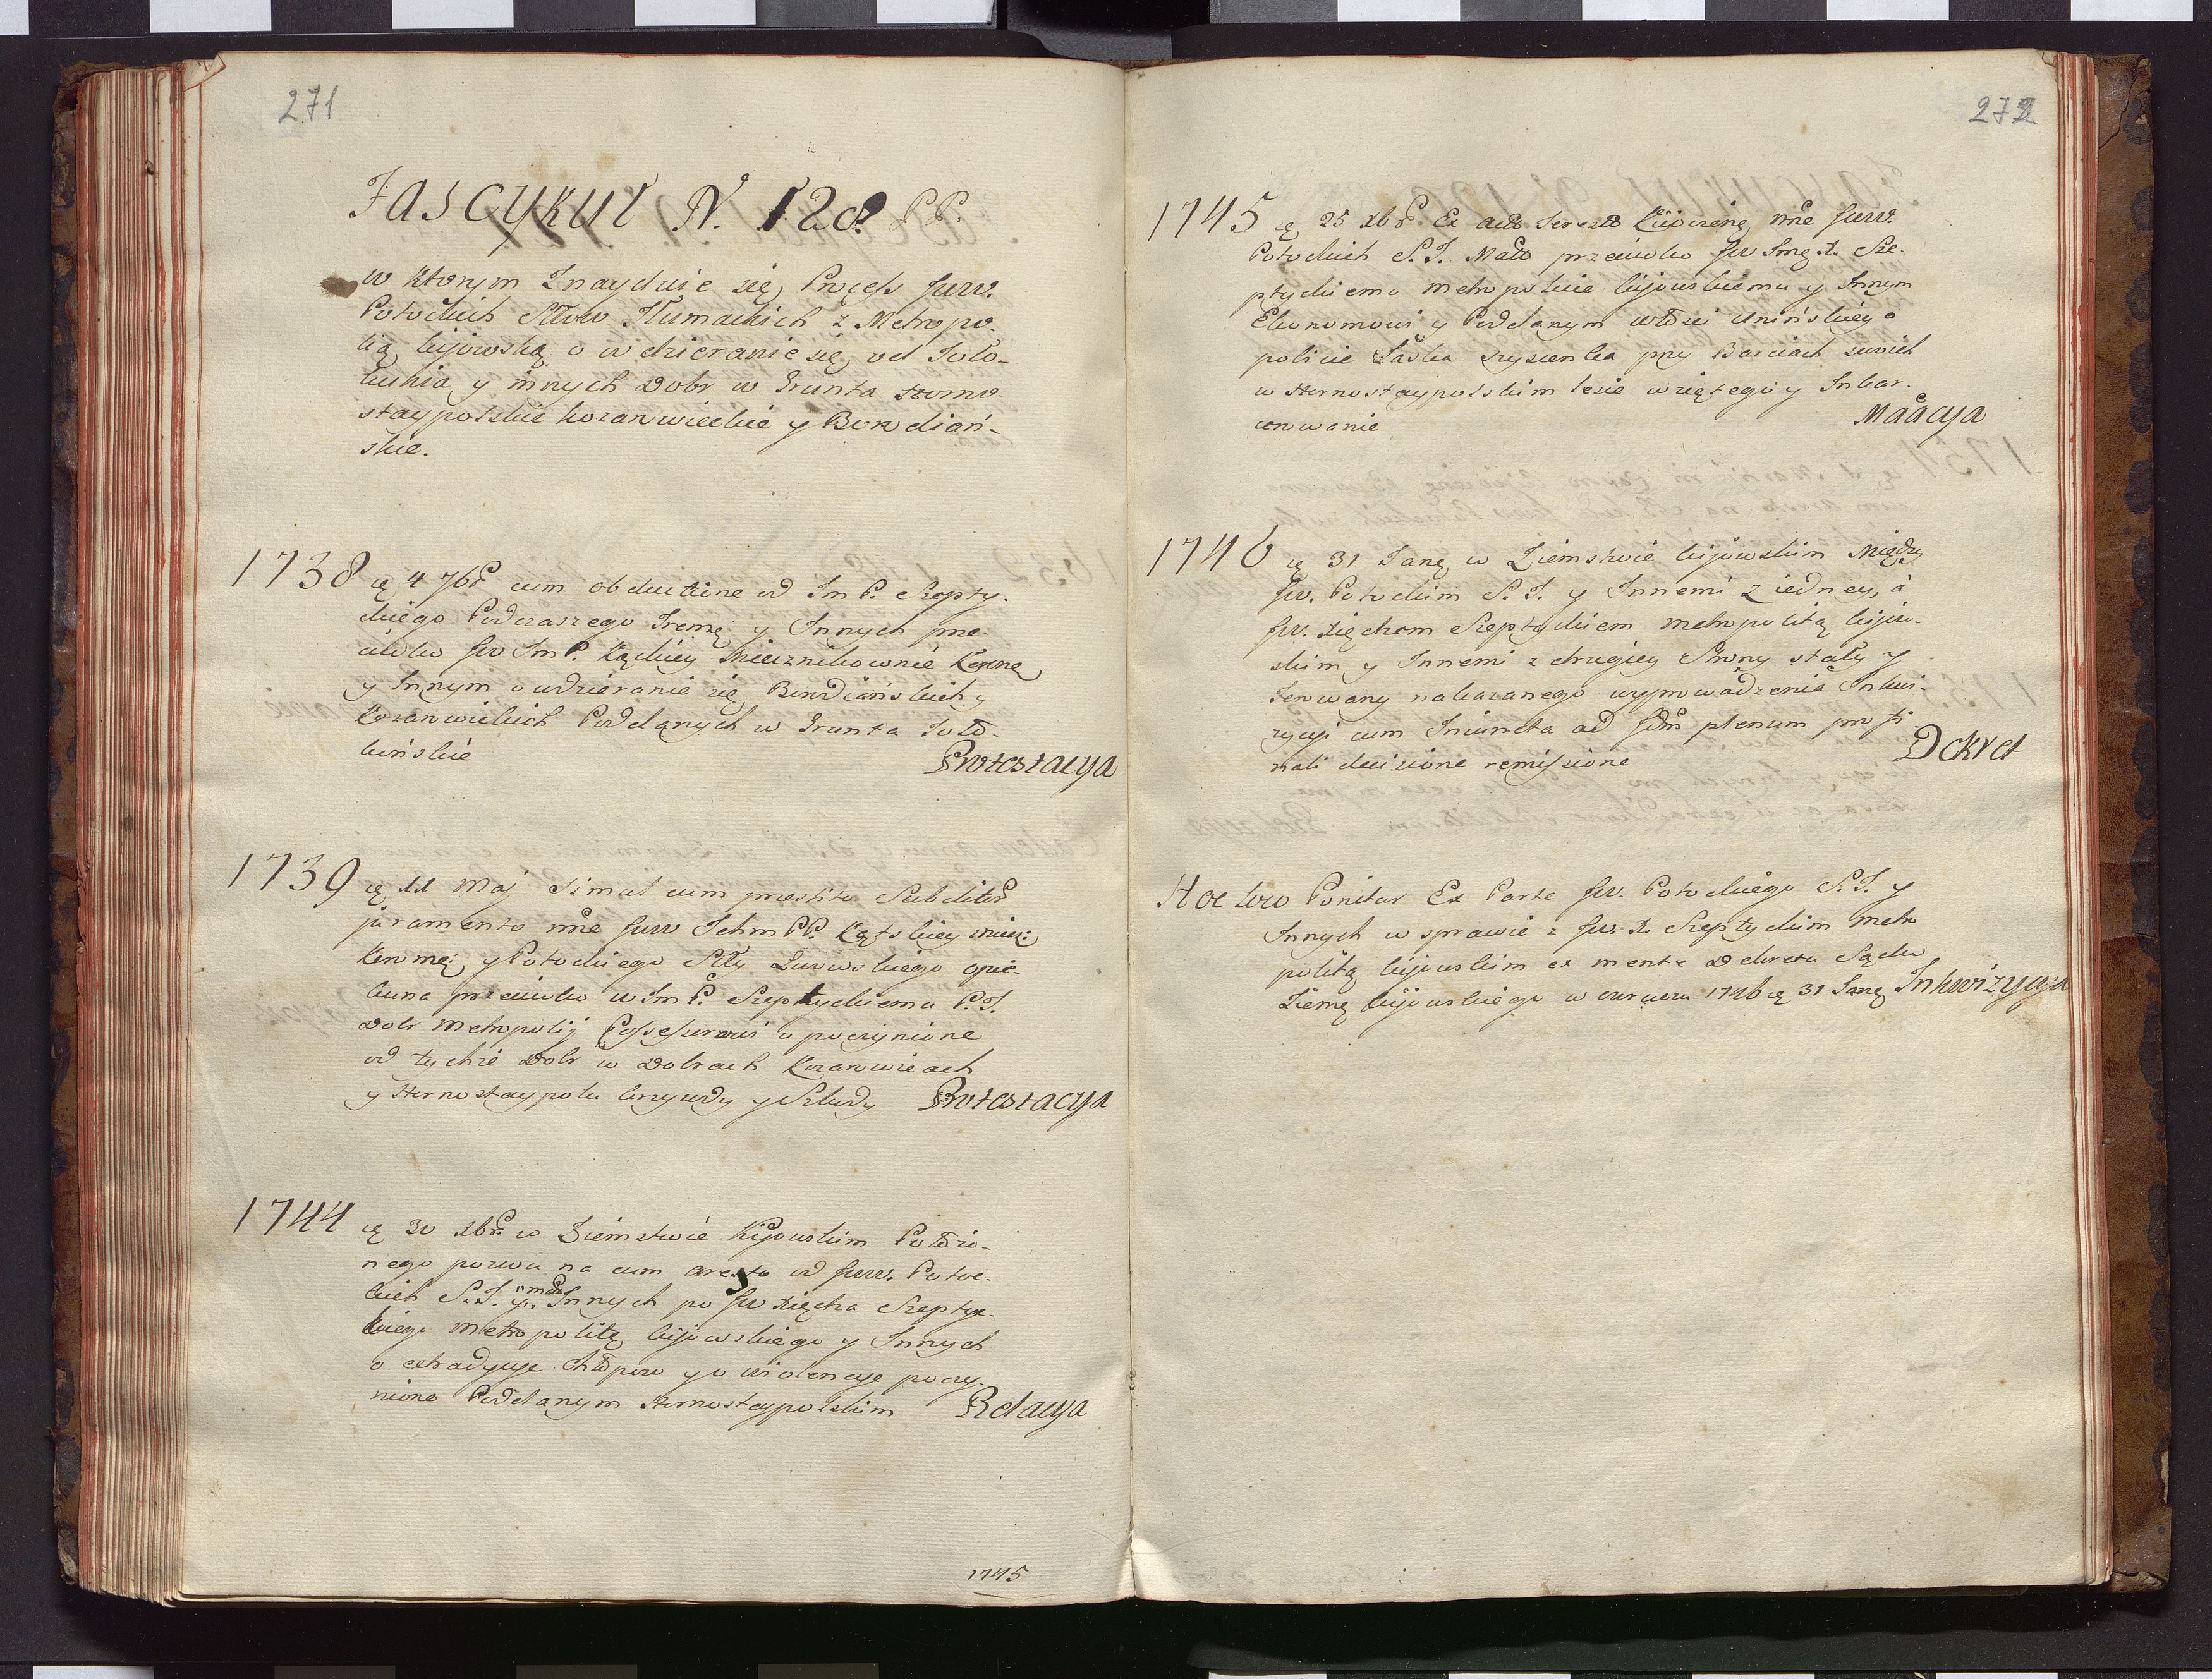 271
Fascykuł N. 128 PP.
w ktorym Znayduie się Process JWW.
Potockich Sttow Tłumackich z Metropo-
lią kijowską o wdzieranie się od Toło-
kunia y innych Dobr w Grunta Horno-
staypolskie kozarowieckie y Borodiań-
skie.
1738 ą 4 7br cum obductione od Im P. Szepty-
ckiego Podczaszego y Innych prze-
ciwko JW Im P. Kąckiey Miecznikownie Koronę
y Innym o wdzieranie się Borodiańskich y
Kozarowickich Poddanych w Grunta Toło-
kuńskie Protestacya
1739 ą 11 Maj Simul cum præstito Subditor
juramento nne JWW Ichm PP. Kątskiey
y Potockiego Stty opie-
kuna przeciwko W Im P. Szeptyckiemu P. J.
Dobr Metropolij Possessorowi o poczynione
od tychże Dobr w Dobrach Kozarowicach
y Hornostaypolu krzywdy y Szkody Protestacya
1744 ą 30 Xbr w Ziemstwie Kijowskim Położo-
nego pozwu na cum aresto od JWW. Potoc-
kich S. T. y Innych po JW Xiędza Szeptyc-
kiego Metropolitę kijowskiego y Innych
o extradycye Chłopow y o wiolencye poczy-
nione Poddanym Hornostaypolskim Relacya
1745
272
1745 ą 25 Xbr Ex actis Kijoviens nne JWW.
Potockich S. T. Mato przeciwko JW Xe-
ptyckiemu Metropolicie kijowskiemu y Innym
Ekonomowi y Poddanym włości Unińskiey o
pobicie Saska przy Barciach swoich
w Hornostaypolskim lesie wziętego y Inkar-
cerowanie Maacya
1746 ą 31 Janę w Ziemstwie kijowskim Między
JW. Potockim S. T. y Innemi z iedney, á
JW. Xiędzem Szeptyckiem Metropolitą kijow-
skim y Innemi z drugiey Strony stały y
ferowany nakazanego wyprowadzenia Inkwi-
zycyi cum Iniuncta ad plenum pro fi-
nali decisione remissione Dekret
Hoc loco Ponitur Ex Parte JW. Potockiego S. T. y
Innych w sprawie z JW. X. Szeptyckim Metro
politą kijowskim ex mente Dekretu Sądu
Ziemę kijowskiego w Owruczu 1746 ą 31 Janę Inkwizycya